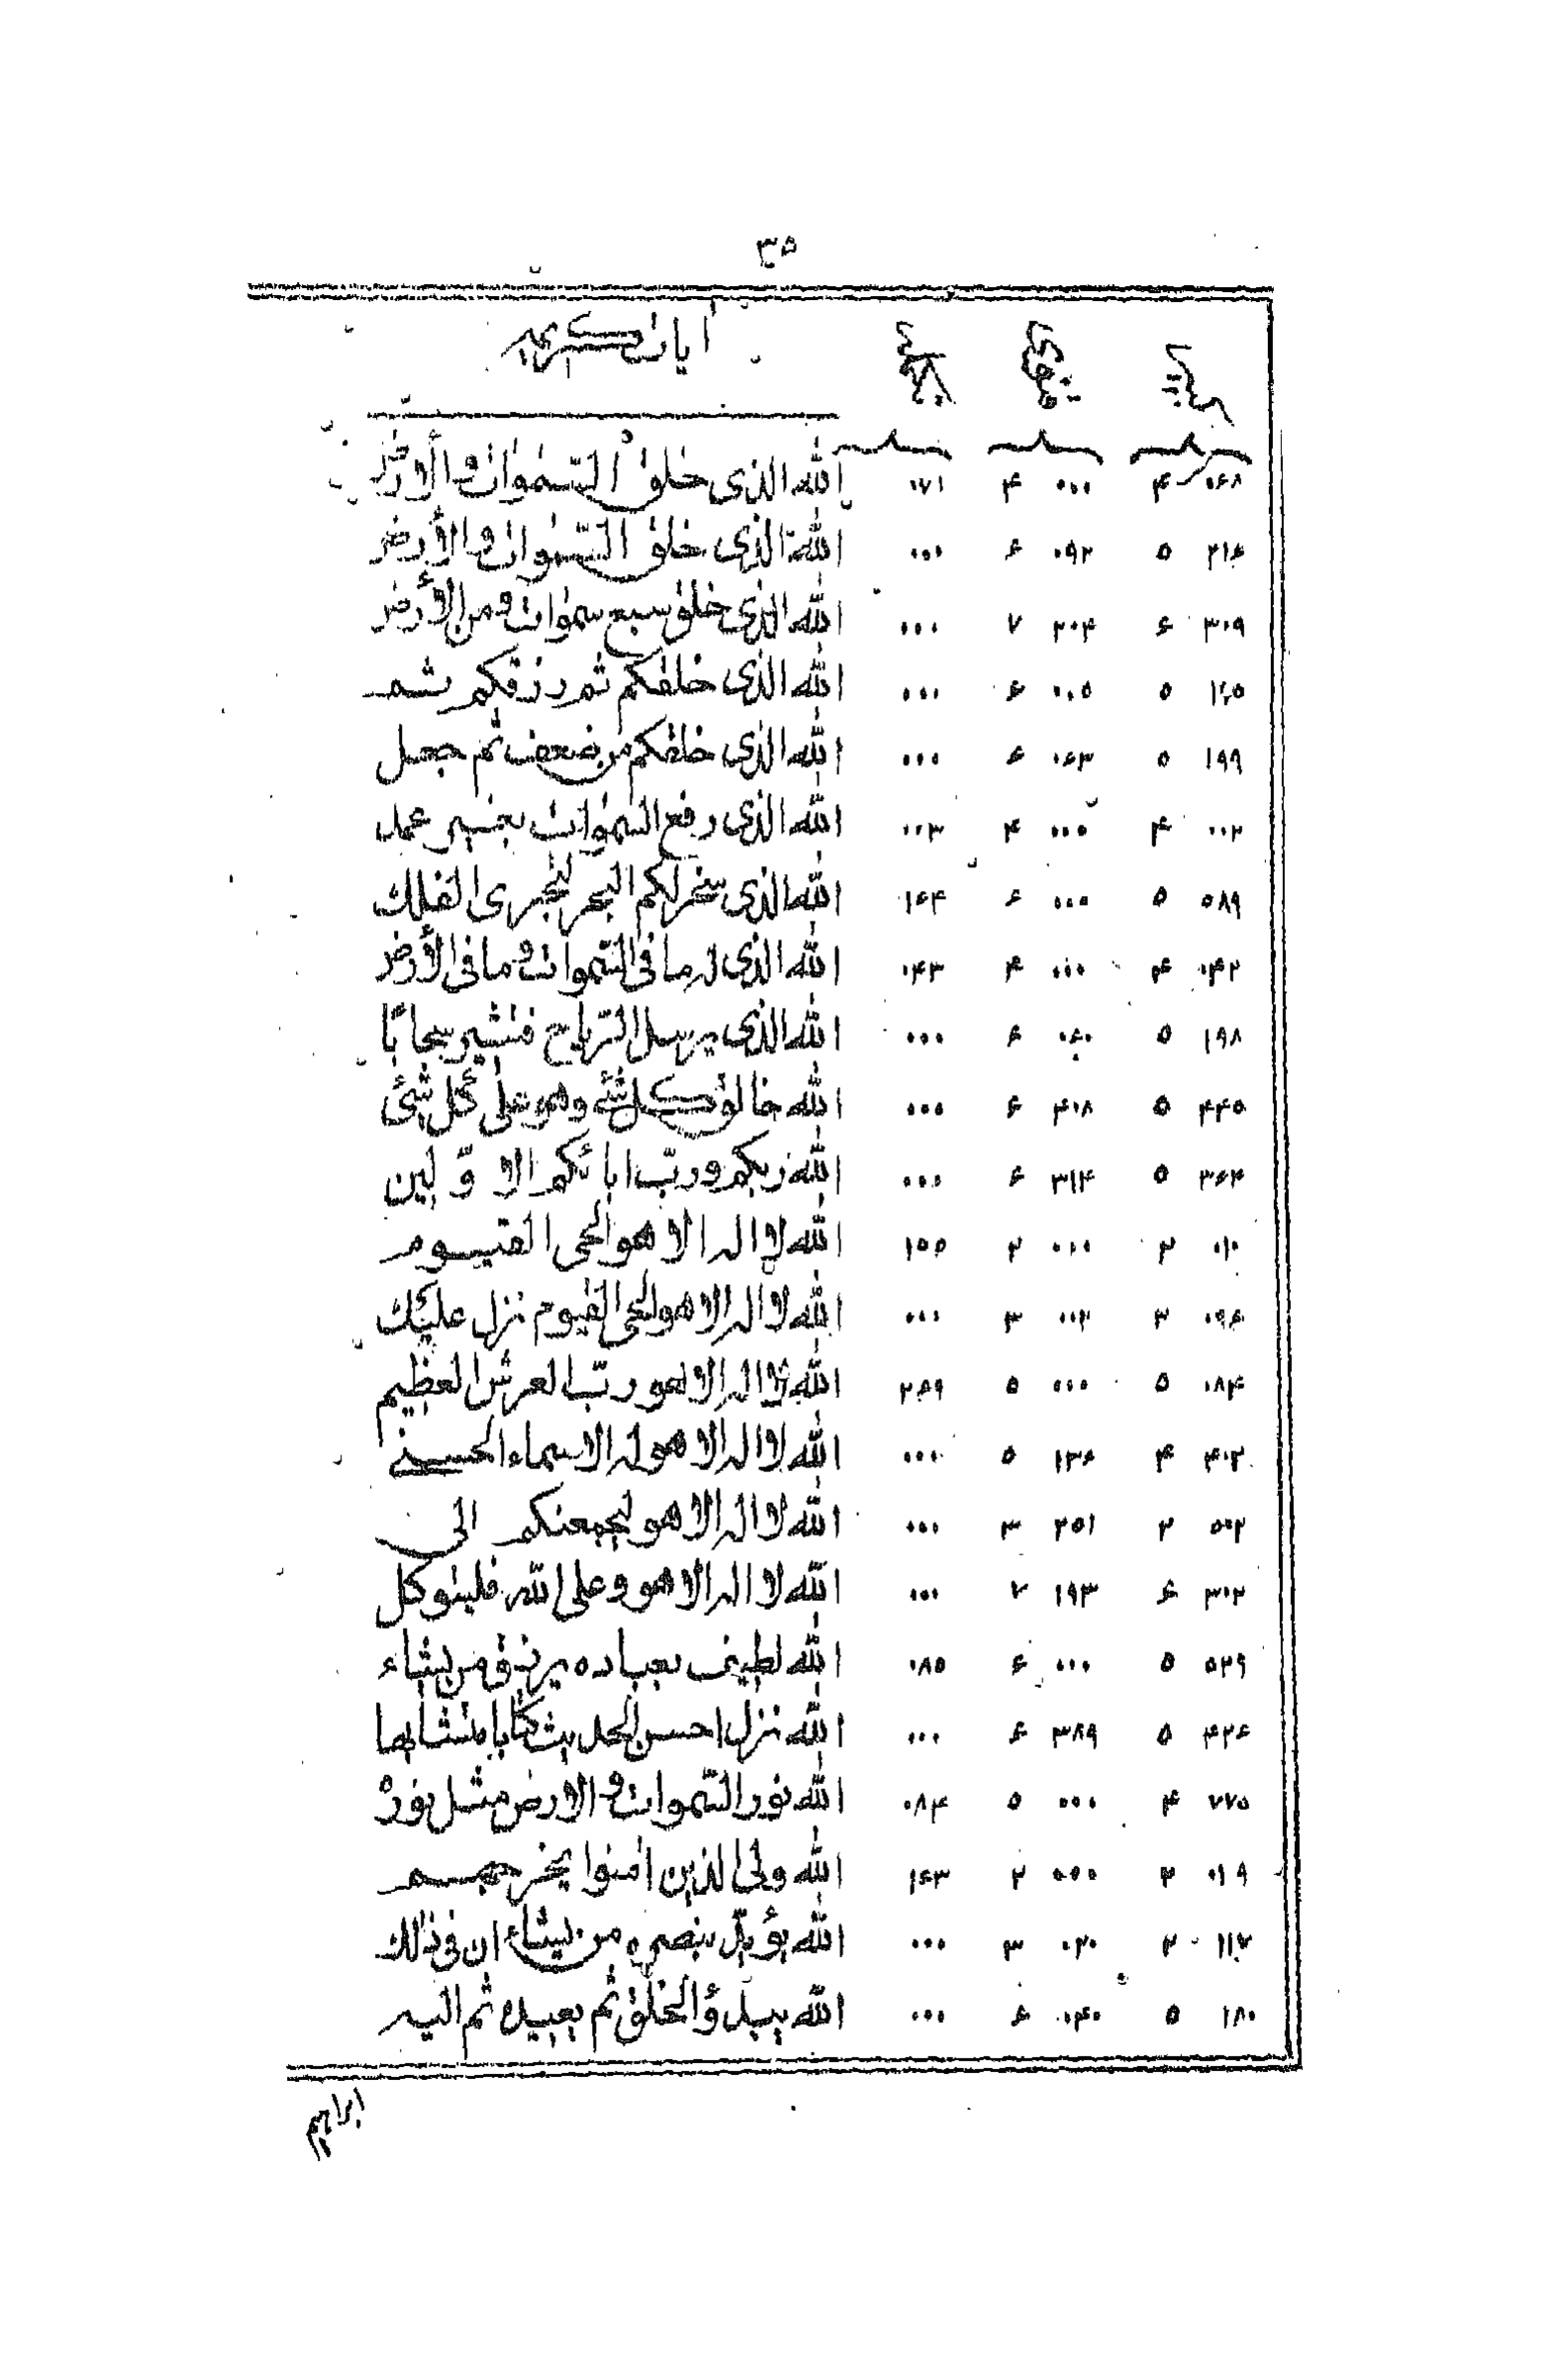 ۳۵
آیات کریمه
۰۶۸ ۴ ۰۰۰ ۴ ۰۷۱ الله الذی خلق السموات و الارض
۲۱۶ ۵ ۰۹۲ ۶ ۰۰۰ الله الذی خلق السموات و الأرض
۳۰۹ ۶ ۲۰۴ ۷ ۰۰۰ الله الذی خلق سبع سموات و من الأرض
۵ ۰۰۵ ۶ ۰۰۰ الله الذی خلقکم ثم رزقکم ثم
۱۹۹ ۵ ۰۶۳ ۶ ۰۰۰ الله الذی خلقکم من ضعف ثم جعل
۰۰۲ ۴ ۰۰۰ ۴ ۰۰۳ الله الذی رفع السموات بغیر عمد
۵۸۹ ۵ ۰۰۰ ۶ ۱۶۴ الله الذی سخر لکم البحر لتجری الفلک
۰۴۲ ۴ ۰۰۰ ۴ ۰۴۳ الله الذی له ما فی السموات و ما فی الأرض
۱۹۸ ۵ ۰۶۰ ۶ ۰۰۰ الله الذی یرسل الریاح فتثیر سحابًا
۴۴۵ ۵ ۴۰۸ ۶ ۰۰۰ الله خالق کل شئ وهو علی کل شئ
۳۶۴ ۵ ۳۱۴ ۶ ۰۰۰ الله ربکم و ربّ ابائکم الاوّلین
۰۱۰ ۲ ۰۰۰ ۲ ۱۵۵ الله لا اله الا هو الحی القیوم
۰۹۶ ۲ ۰۰۲ ۳ ۰۰۰ الله لا اله الا هو الحی القیوم نزل علیک
۰۸۴ ۵ ۰۰۰ ۵ ۲۶۹ الله لا اله الا هو ربّ العرش العظیم
۴۰۲ ۴ ۱۳۶ ۵ ۰۰۰ الله لا اله الا هو له الاسماء الحسنی
۵۰۲ ۲ ۲۵۱ ۳ ۰۰۰ الله لا اله الا هو لیجمعنکم الی
۳۰۲ ۶ ۱۹۳ ۷ ۰۰۰ الله لا اله الا هو و علی الله فلیتوکل
۵۲۹ ۵ ۰۰۰ ۶ ۰۸۵ الله لطیف بعباده یرزق من یشاء
۴۲۶ ۵ ۳۸۹ ۶ ۰۰۰ الله نزل احسن الحدیث کتابا متشابها
۷۷۵ ۴ ۰۰۰ ۵ ۰۸۴ الله نور السّموات و الارض مثل نوره
۰۱۹ ۲ ۰۰۰ ۲ ۱۶۳ الله ولی الذین امنوا یخرجهم
۱۱۷ ۲ ۰۲۰ ۳ ۰۰۰ الله یؤیّد بنصره من یشاء ان فی ذلک
۱۸۰ ۵ ۰۴۰ ۶ ۰۰۰ الله یبدؤ الخلق ثم یعیده ثم الیه
ابراهیم